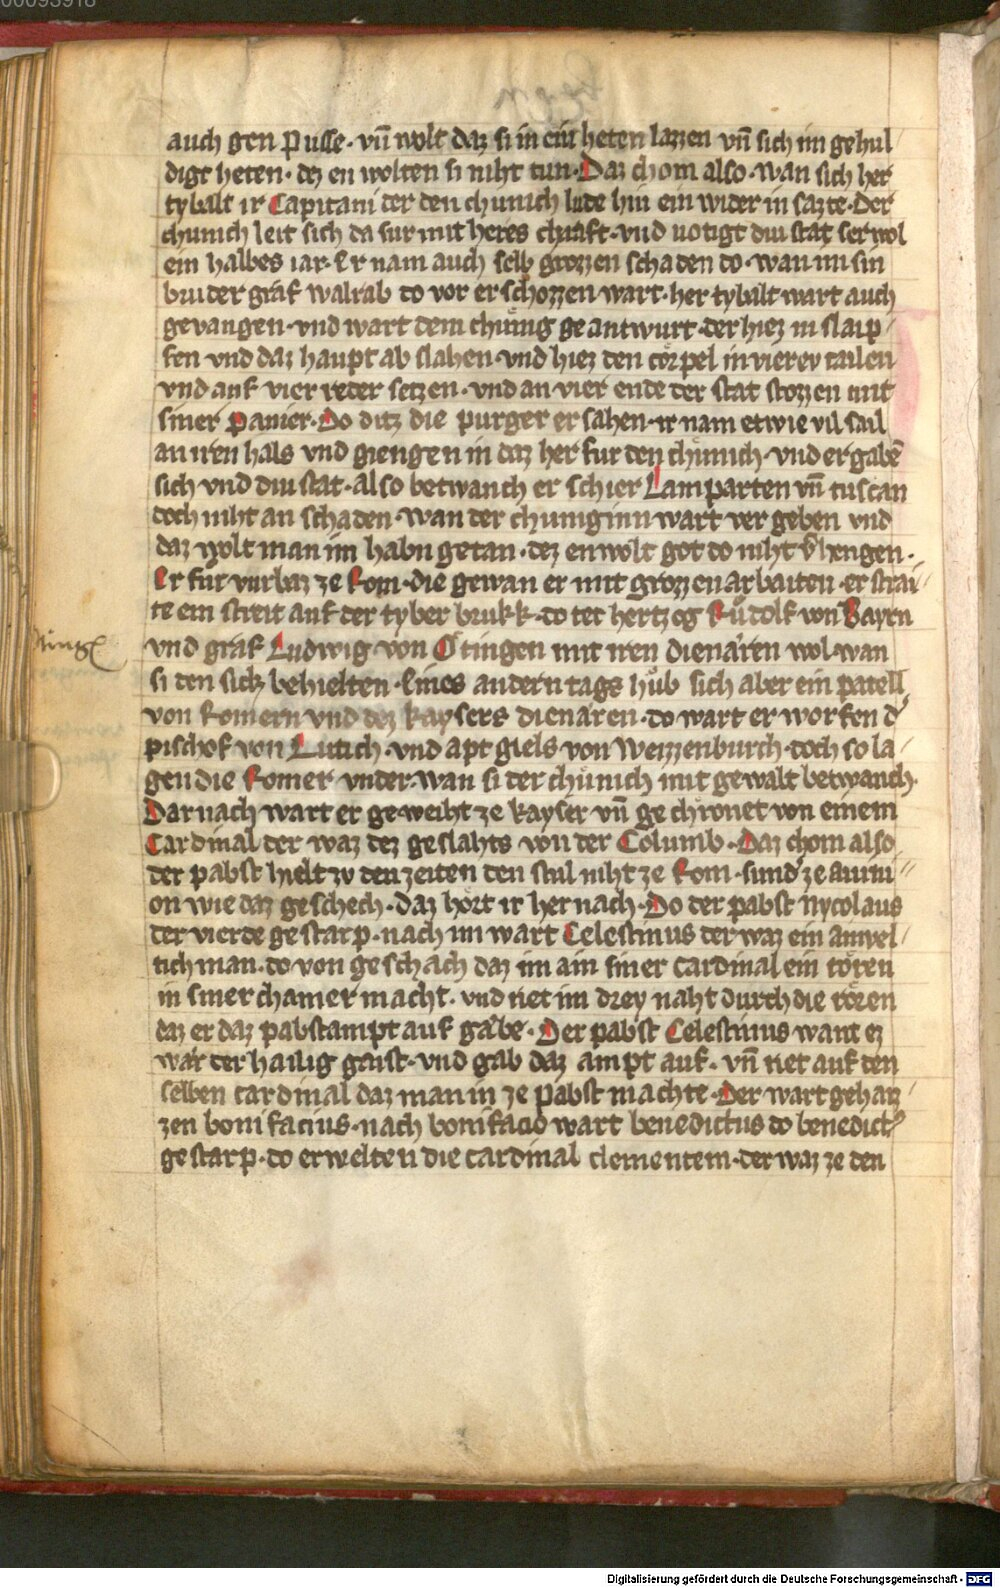 00093918
auch gen Pusse · vñ wolt daz si in ein heten lazzen vñ sich im gehul/
digt heten · dez en wolten si niht tun · Daz chom also · wan sich her
tybalt ir Capitani der den chunich lude hin ein wider in sazte · Der
chunich leit sich da fur mit heres chraft · vnd notigt diu stat ser wol
ein halbes iar · Er nam auch selb grozzen schaden do · wan im sin
bruder graf walrab do vor erschozzen wart · her tybalt wart auch
gevangen · vnd wart dem chunig geantwurt · der hiez in slaip/
fen vnd daz haupt ab slahen · vnd hiez den corpel in vierev tailen
vnd auf vier reder setzen · vnd an vier ende der stat stozzen mit
siner Panier · Do ditz die purger ersahen · ir nam etwie vil sail
an iren hals vnd giengen in daz her fur den chunich · vnd ergabē
sich vnd diu stat · also betwanch er schier Lamparten vñ tuscan
doch niht an schaden · wan der chuniginn wart ver geben vnd
daz wolt man im habn getan · dez enwolt got do niht v̄hengen ·
Er fur vurbaz ze Rom · die gewan er mit grozzen arbaiten · er strai/
te ein streit auf der tyber brukk · do ter hertzog Rudolf von Bayrn
vnd graf Ludwig von Otingen mit iren dienaren wol · wan
si den sick behielten · Eines andern tags hub sich aber ein patell
von Romern vnd dez kaysers dienaren · do wart erworfen d'
pischof von Lutich · vnd apt giels von Weizzenburch · doch so la/
gen die Romer vnder · wan si der chunich mit gewalt betwanch ·
Darnach wart er geweiht ze kayser vñ gechronet von einem
Cardinal der waz dez geslahts von der Columb · Daz chom also
der pabst hielt zu den zeiten den stul niht ze Rom · sund' ze auini/
on wie daz geschech · daz hort ir her nach · Do der pabst Nycolaus
der vierde gestarp · nach im wart Celestinus der waz ein ainuel/
tich man · do von geschach daz im ain siner Cardinal ein roren
in siner chamer macht · vnd riet im drey naht durch die roren
daz er daz pabstampt auf gabe · Der pabst Celestinus want ez
war der hailig gaist · vnd gab daz ampt auf · vñ riet auf den
selben cardinal daz man in ze pabst machte · Der wart gehaiz/
zen bonifacius · nach bonifacio wart benedictus do benedict'
gestarp · do erwelten die cardinal clementem · der waz ze den
Digitalisierung gefördert durch die Deutsche Forschungsgemeinschaft - DFG